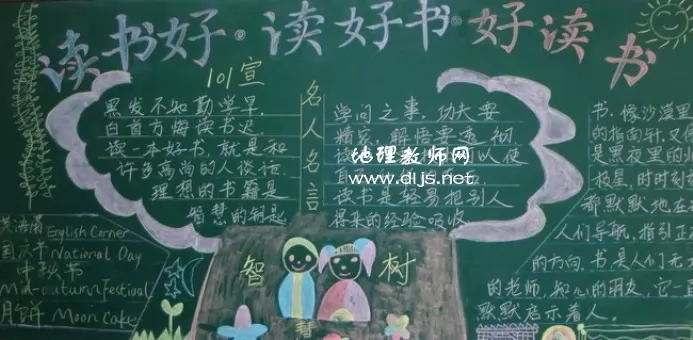 读书好·读好书·好读书
101宣
黑发不知勤学早,
白首方悔读书迟.
读一本好书,就是和
许多高尚的人谈话.
理想的书籍是
智慧的钥匙
名人名言
学问之事,功夫要
精密,解悟要透彻
以使
读书是轻易把别人
得来的经验吸收
地理教师网
www.dljs.net
书,像沙漠里
的指南针,又
是黑夜里的
极星,时时刻
都默默地在
人们导航,指引正
的方向.书是人们无
的老师,知心的朋友,它一直
默默启示着人.
英语角 English Corner
国庆节 National Day
中秋节
Mid-autumn festival
月饼 Moon Cake
智
树
慧